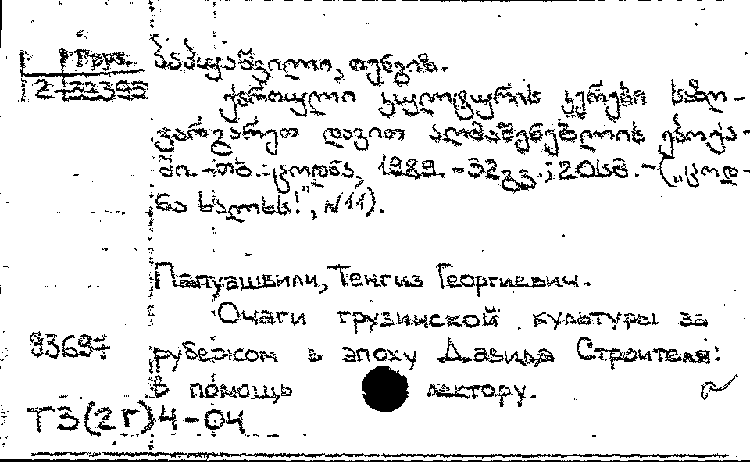 Груз.
პაპუაშვილი, თენგიზ.
2-33395
ქართული კულტურის კერები საზღ-
ვარგარეთ დავით აღმაშენებლის ეპოქა-
ში. -თბ.: ცოდნა, 1989. -32გვ.; 20სმ. -(„ცოდ-
ნა ხალხს!", №11).
Папуашвили, Тенгиз Георгиевич.
Очаги грузинской культуры за
93697 рубежом в эпоху Давида Строителя:
В помощь лектору.
Т3(2Г)4-04